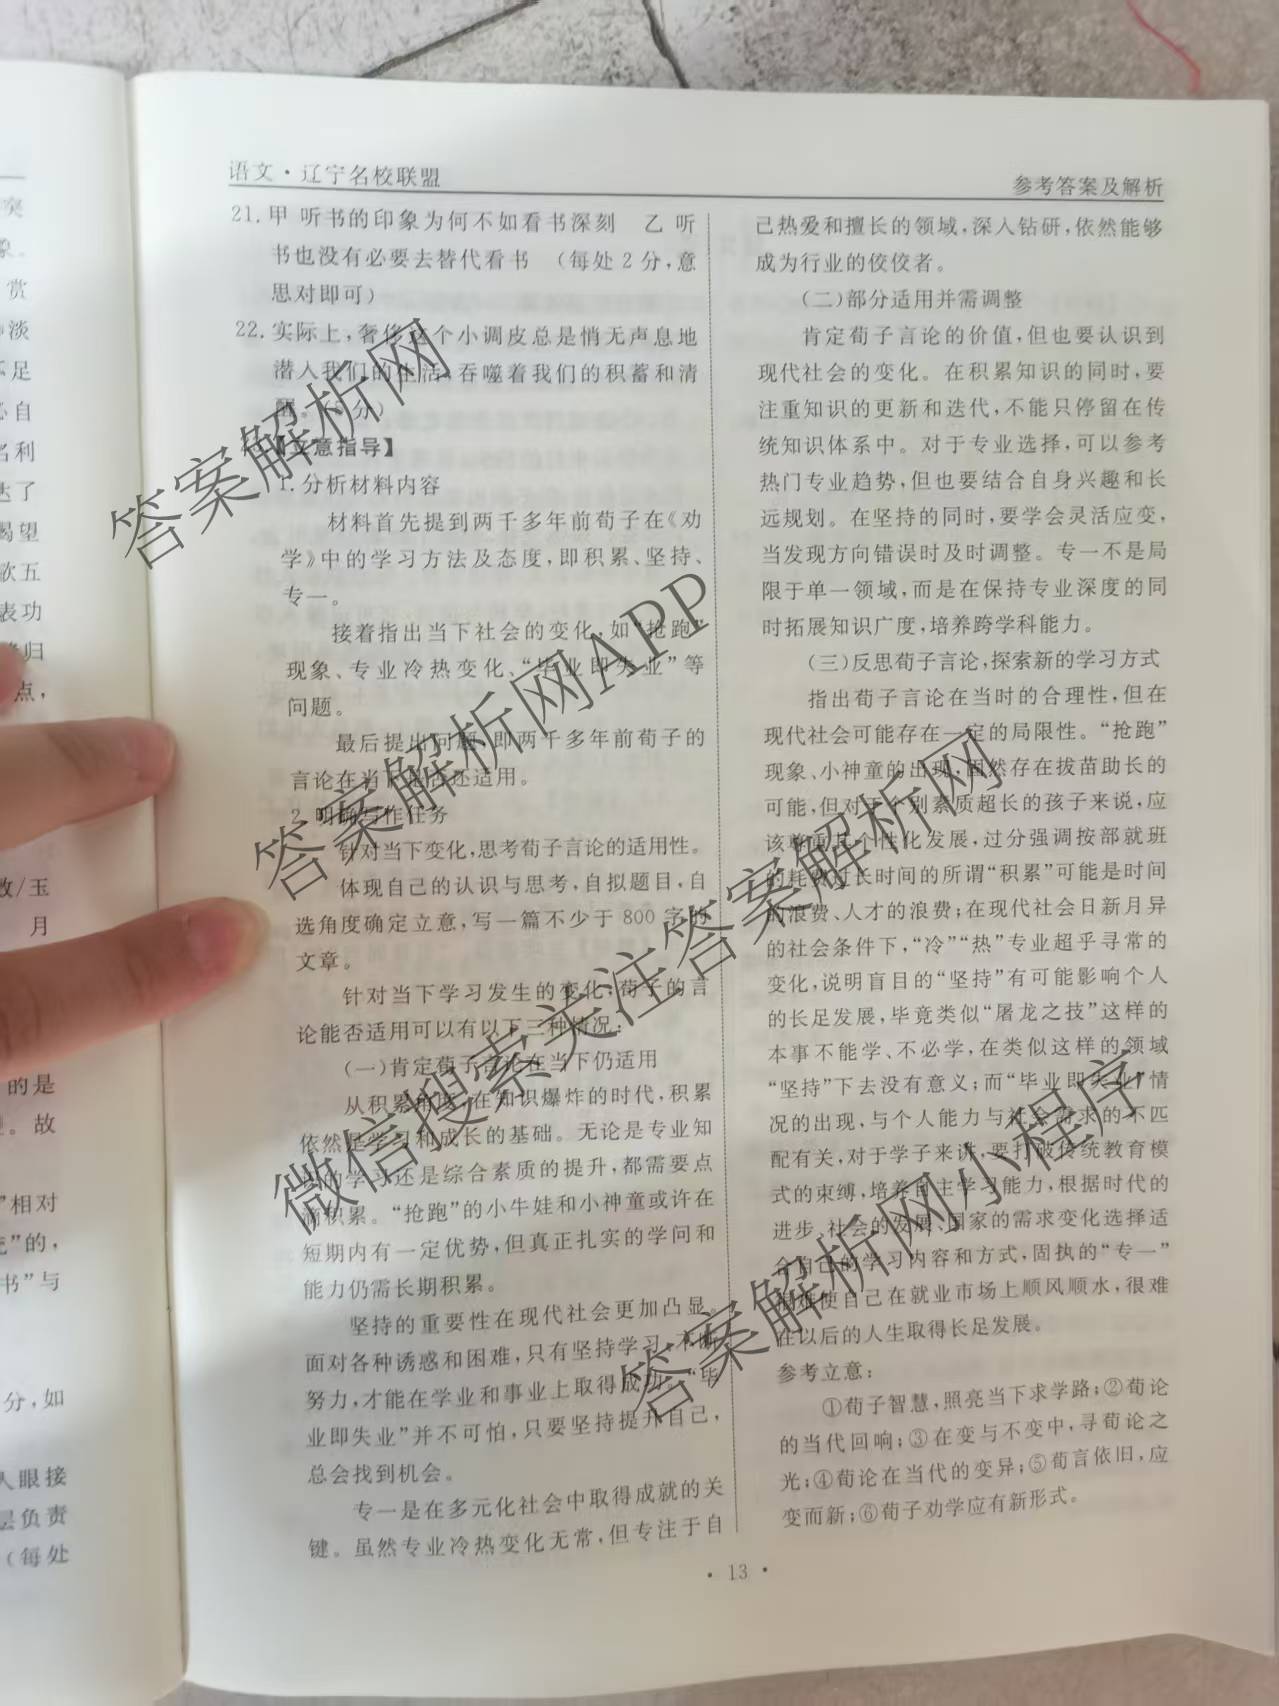 语文·辽宁名校联盟
参考答案及解析
21.甲 听书的印象为何不如看书深刻 乙 听
书也没有必要去替代看书 (每处2分,意
思对即可)
22.实际上,奢侈这个小调皮总是悄无声息地
潜入我们的生活,吞噬着我们的积蓄和清
分)
【立意指导】
1.分析材料内容
材料首先提到两千多年前荀子在《劝
学》中的学习方法及态度,即积累、坚持、
专一。
接着指出当下社会的变化,如“抢跑”
现象、专业冷热变化、“毕业即失业”等
问题。
最后提出问题,即两千多年前荀子的
言论在当下是否还适用。
2.明确写作任务
针对当下变化,思考荀子言论的适用性。
体现自己的认识与思考,自拟题目,自
选角度确定立意,写一篇不少于800字的
文章。
针对当下学习发生的变化,荀子的言
论能否适用可以有以下三种情况:
(一)肯定荀子言论在当下仍适用
从积累 在知识爆炸的时代,积累
依然是学习和成长的基础。无论是专业知
学习还是综合素质的提升,都需要点
滴积累。“抢跑”的小牛娃和小神童或许在
短期内有一定优势,但真正扎实的学问和
能力仍需长期积累。
坚持的重要性在现代社会更加凸显。
面对各种诱惑和困难,只有坚持学习、不断
努力,才能在学业和事业上取得成功。“毕
业即失业”并不可怕,只要坚持提升自己,
总会找到机会。
专一是在多元化社会中取得成就的关
键。虽然专业冷热变化无常,但专注于自
己热爱和擅长的领域,深入钻研,依然能够
成为行业的佼佼者。
(二)部分适用并需调整
肯定荀子言论的价值,但也要认识到
现代社会的变化。在积累知识的同时,要
注重知识的更新和迭代,不能只停留在传
统知识体系中。对于专业选择,可以参考
热门专业趋势,但也要结合自身兴趣和长
远规划。在坚持的同时,要学会灵活应变,
当发现方向错误时及时调整。专一不是局
限于单一领域,而是在保持专业深度的同
时拓展知识广度,培养跨学科能力。
(三)反思荀子言论,探索新的学习方式
指出荀子言论在当时的合理性,但在
现代社会可能存在一定的局限性。“抢跑”
现象、小神童的出现,固然存在拔苗助长的
可能,但对于个别素质超长的孩子来说,应
该尊重其个性化发展,过分强调按部就班
的耗费过长时间的所谓“积累”可能是时间
的浪费、人才的浪费;在现代社会日新月异
的社会条件下,“冷”“热”专业超乎寻常的
变化,说明盲目的“坚持”有可能影响个人
的长足发展,毕竟类似“屠龙之技”这样的
本事不能学、不必学,在类似这样的领域
“坚持”下去没有意义;而“毕业即失业”情
况的出现,与个人能力与社会需求的不匹
配有关,对于学子来讲,要打破传统教育模
式的束缚,培养自主学习能力,根据时代的
进步、社会的发展、国家的需求变化选择适
合自己的学习内容和方式,固执的“专一”
很难使自己在就业市场上顺风顺水,很难
在以后的人生取得长足发展。
参考立意:
①荀子智慧,照亮当下求学路;②荀论
的当代回响;③在变与不变中,寻荀论之
光;④荀论在当代的变异;⑤荀言依旧,应
变而新;⑥荀子劝学应有新形式。
· 13 ·
突
赏
淡
不足
自
名利
达了
渴望
欲五
表功
归
点,
/玉
月
的是
。故
”相对
”的,
书”与
分,如
人眼接
层负责
(每处
答案解析网
答案解析网APP
微信搜索关注答案解析网
答案解析网小程序